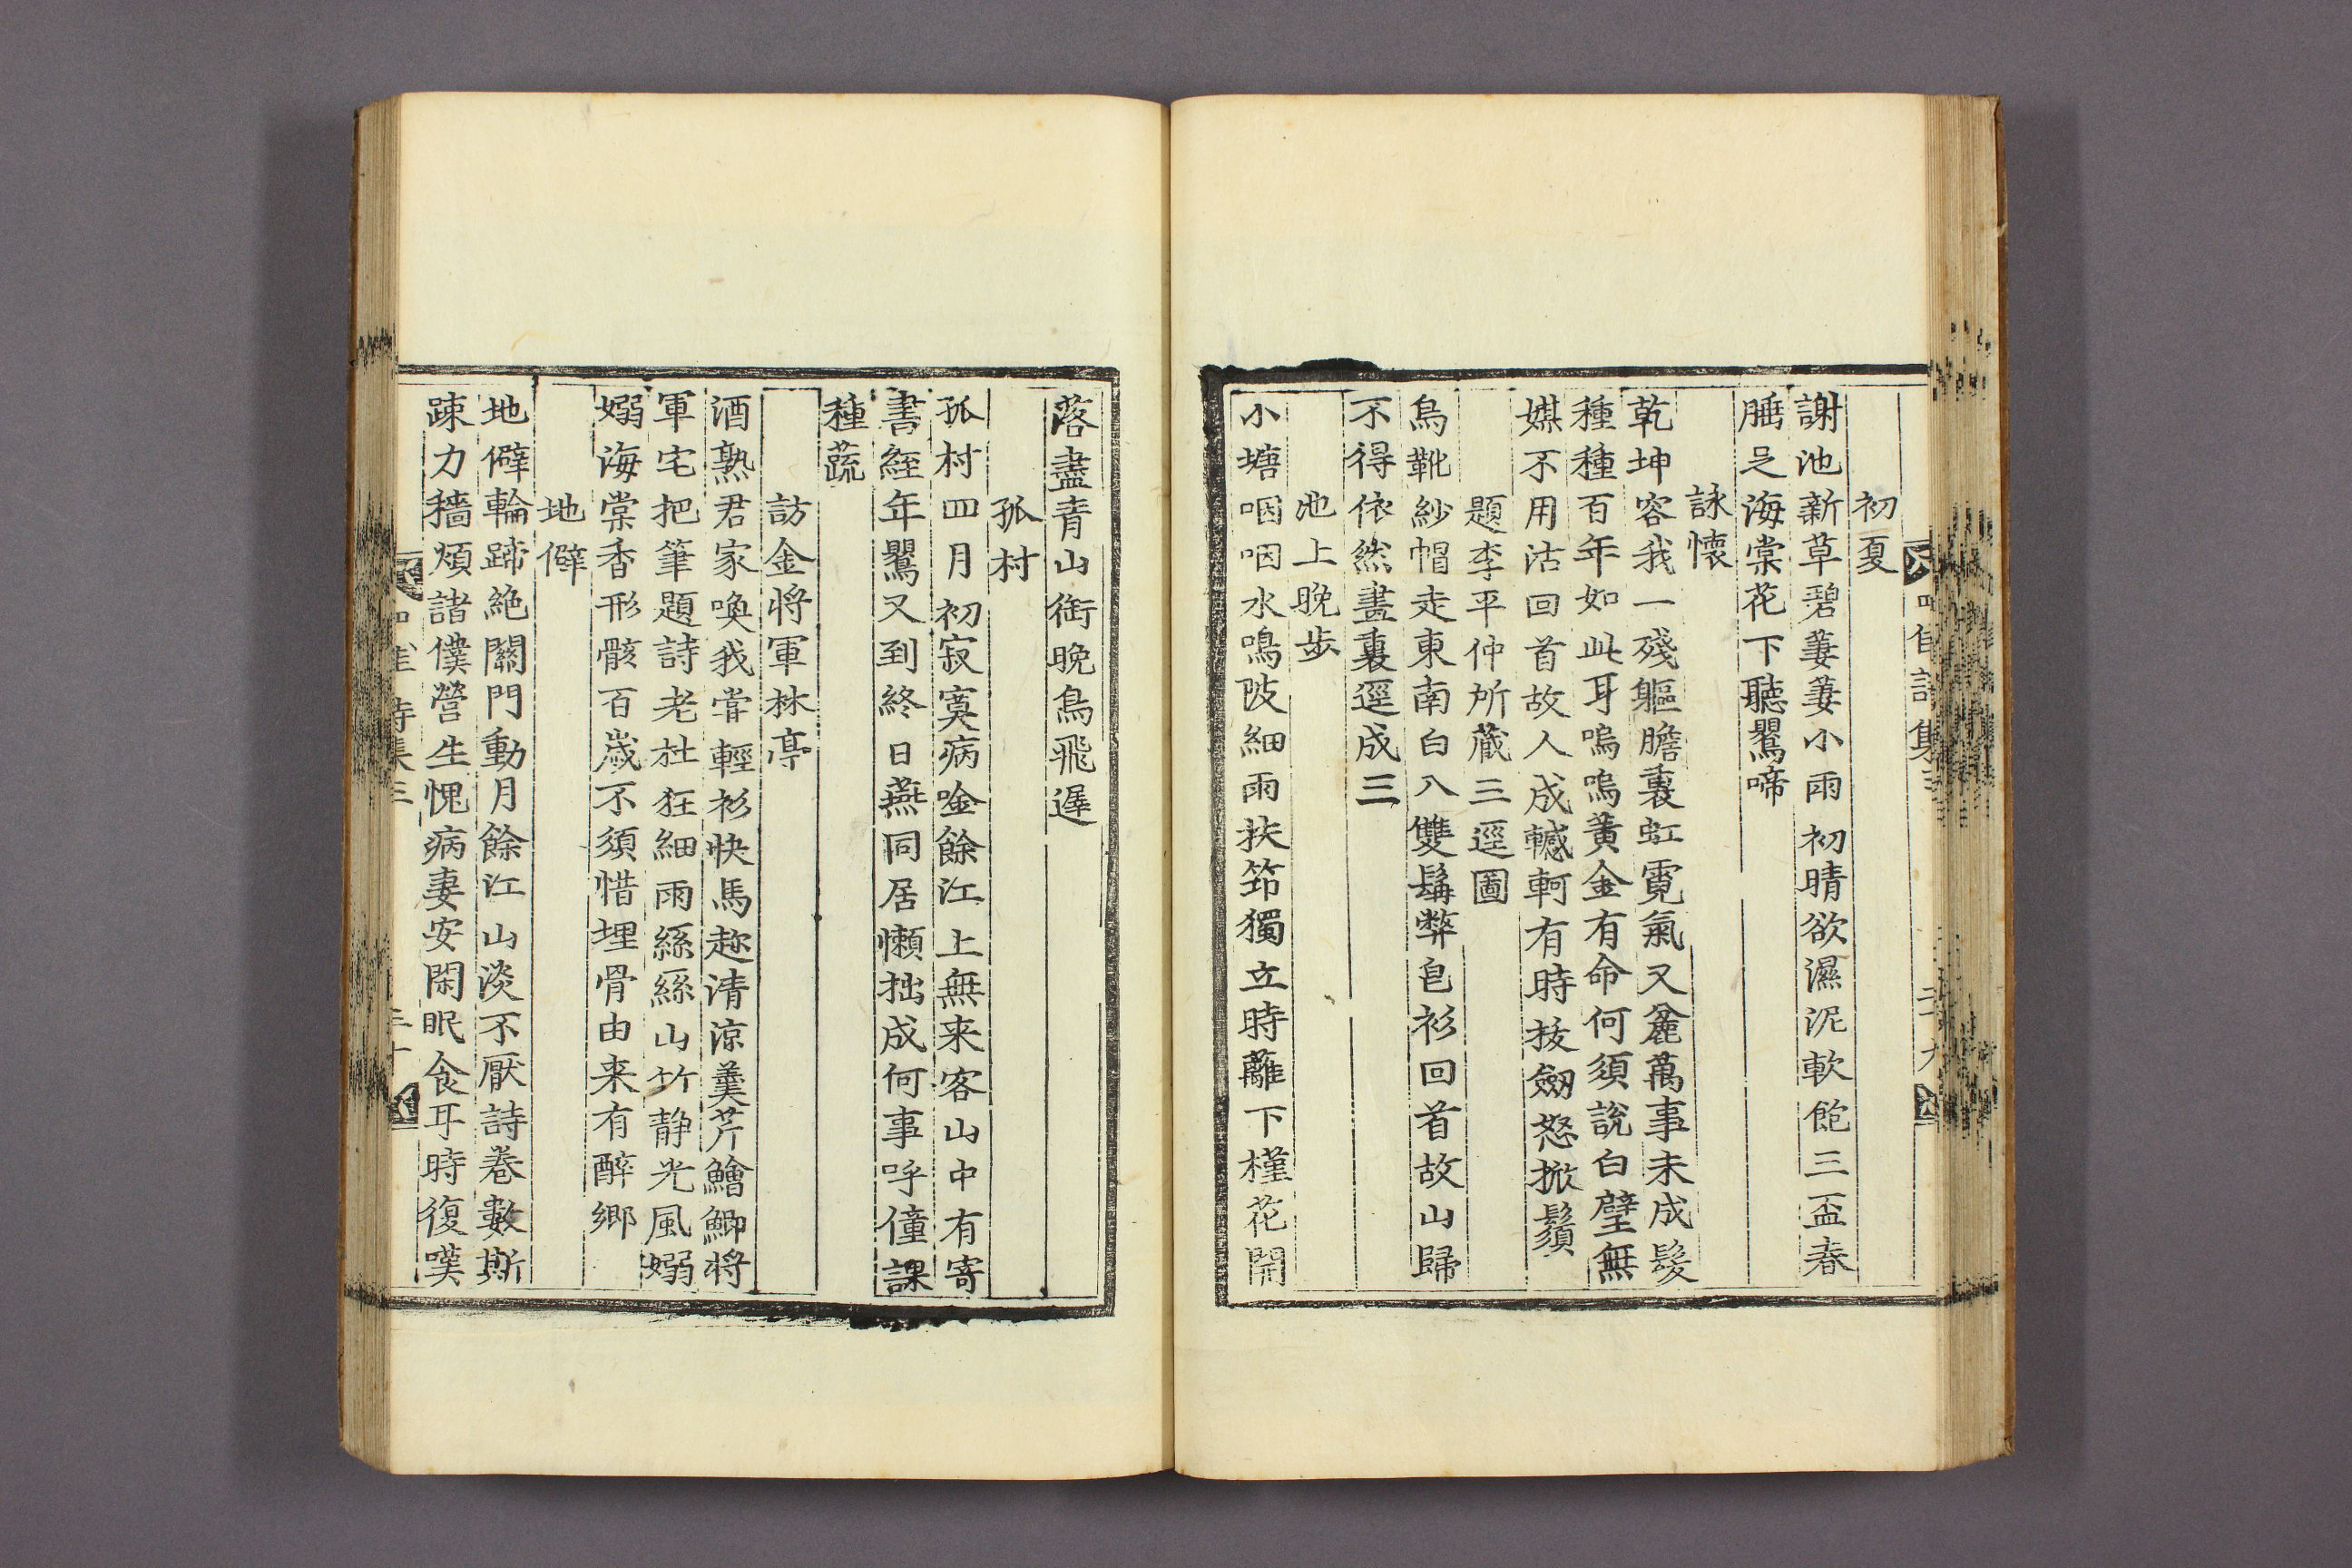 初夏
謝池新草碧萋萋小雨初晴欲濕泥軟飽三盃春
睡足海棠花下聽鸎啼
詠懷
乾坤容我一殘軀膽裏虹霓氣又麁萬事未成髮
種種百年如此耳嗚嗚黃金有命何須說白璧無
媒不用沽回首故人成轗軻有時拔劒怒掀鬚
題李平仲所藏三逕圖
烏靴紗帽走東南白入雙鬅弊皀衫回首故山歸
不得依然畫裏逕成三
池上晚步
小塘咽咽水鳴陂細雨扶笻獨立時蘺下槿花開
落盡青山銜晚鳥飛遲
孤村
孤村四月初寂寞病唫餘江上無来客山中有寄
書經年鸎又到終日燕同居懶拙成何事呼僮課
種蔬
訪金將軍林亭
酒熟君家喚我甞輕衫快馬趂清凉羹芹鱠鯽將
軍宅把筆題詩老杜狂細雨絲絲山竹静光風嫋
嫋海棠香形骸百歲不須惜埋骨由来有醉郷
地僻
地僻輪蹄絶關門動月餘江山淡不厭詩卷數斯
踈力穡煩諸僕營生愧病妻安閑眠食耳時復嘆